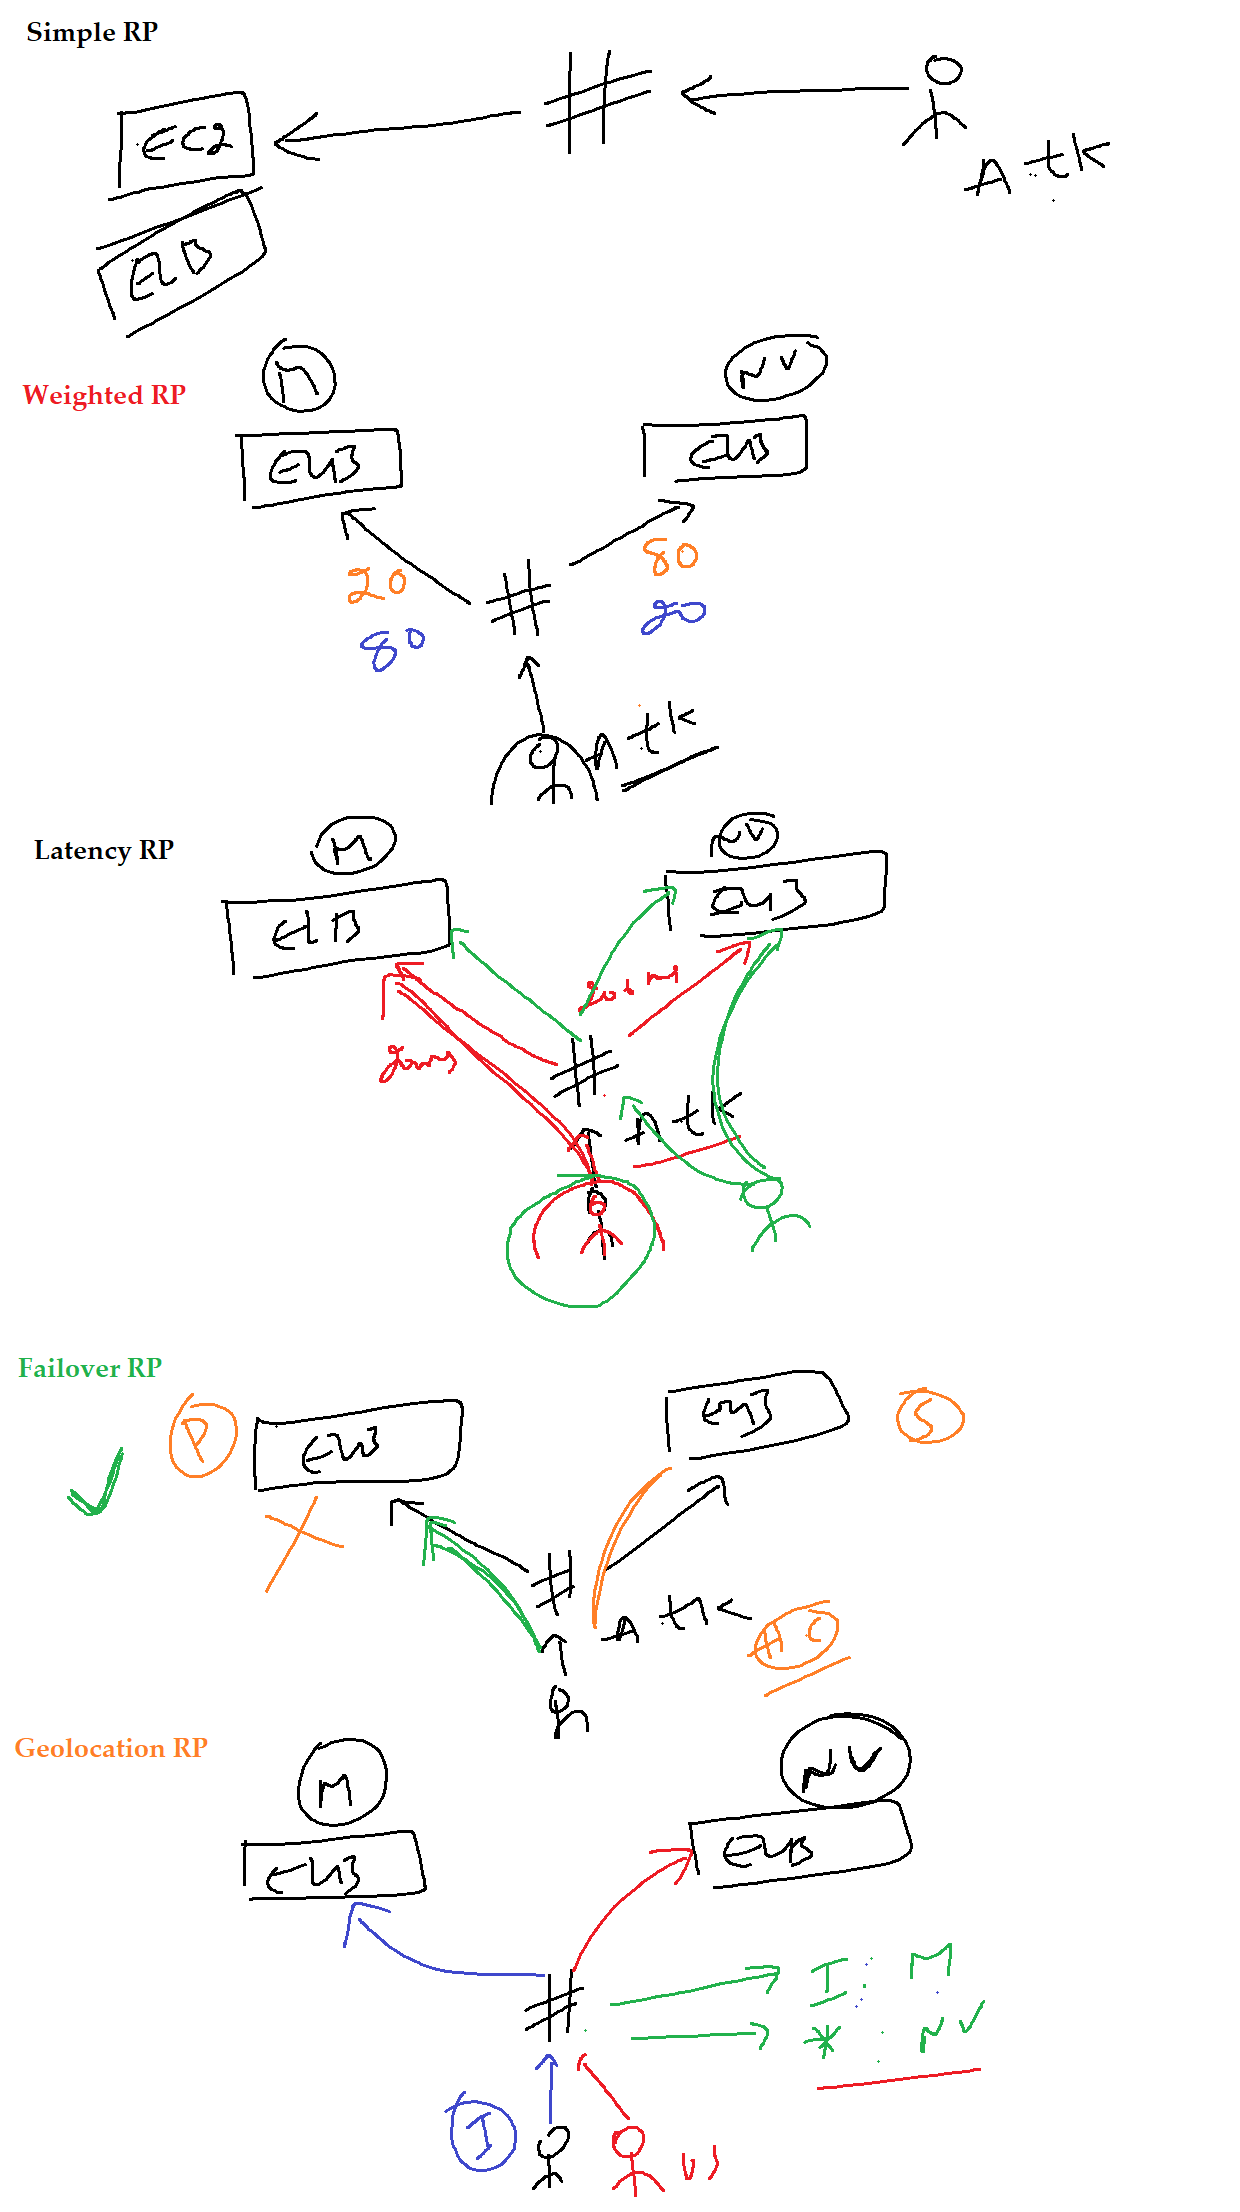 Simple RP
EC2
A.tk
ELB
M
NV
Weighted RP
ELB
ELB
20
80
80
20
A tk
M
NV
Latency RP
ELB
ELB
A tk
Failover RP
P
ELB
ELB
S
A.tk
HC
Geolocation RP
M
NV
ELB
ELB
I : M
* : NV
I
US